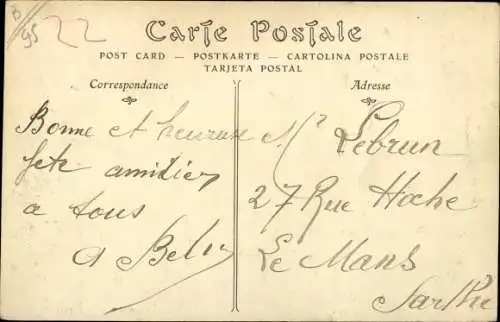 B
95
22
Carte Postale
POST CARD — POSTKARTE — CARTOLINA POSTALE
TARJETA POSTAL
Correspondance
Adresse
Bonne et heureuse
fete amities
a tous
A
Mr Lebrun
27 Rue Hoche
Le Mans
Sarthe